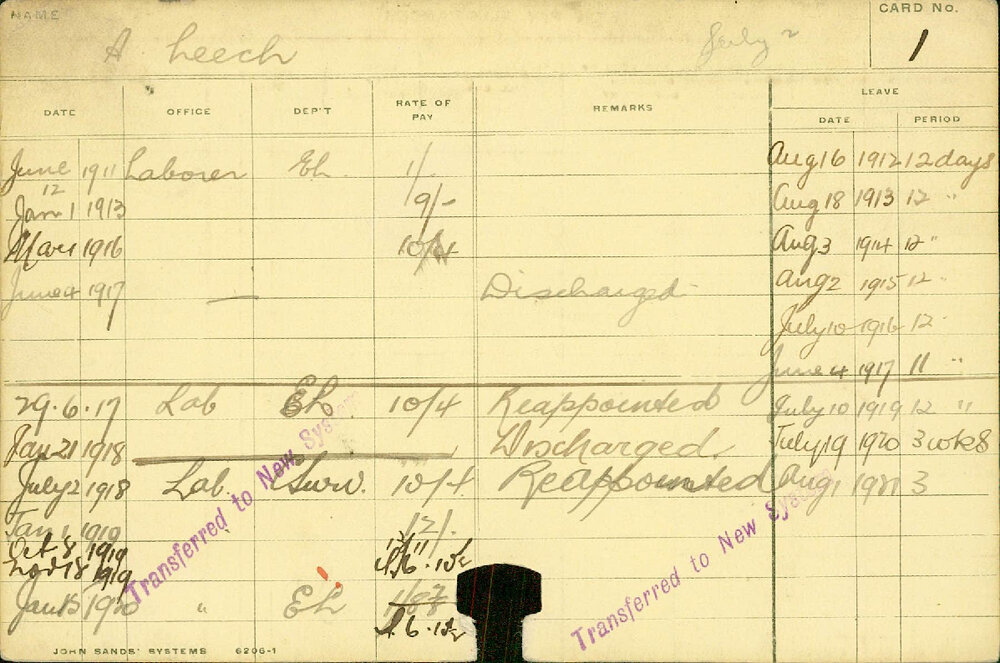 NAME
CARD No.
A Leech July 2 1
DATE OFFICE DEP'T RATE OF PAY REMARKS LEAVE
DATE PERIOD
June 12 1911 Laborer EL. 1/. Aug 16 1912 12 days
Jan 1 1913 9/- Aug 18 1913 12 "
Mar 1 1916 10/4 Aug 3 1914 12 "
June 4 1917 — Discharged Aug 2 1915 12 "
July 10 1916 12 "
June 4 1917 11 "
29.6.17 Lab EL 10/4 Reappointed July 10 1919 12 "
Jan 21 1918 Discharged. July 19 1920 3 wks
July 2 1918 Lab. Surv. 10/4 Reappointed Aug 1 1921 3
Jan 1 1919 12/.
Oct. 8 1919
Nov 18 1919
Jan 15 1920 " EL
Transferred to New System
Transferred to New System
JOHN SANDS' SYSTEMS 6206-1